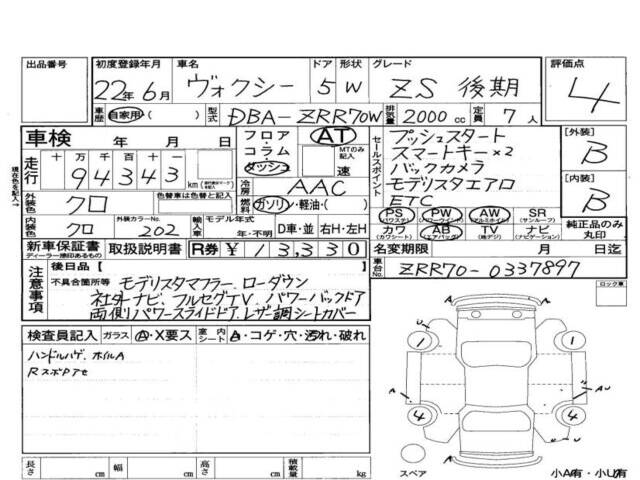 出品番号 初度登録年月 車名 ドア 形状 グレード 評価点
22年 6月 ヴォクシー 5 W ZS 後期 4
車歴 自家用・( ) 型式 DBA-ZRR70W 排気量 2000 cc 定員 7 人
車検 年 月 日 フロア AT コラム ダッシュ MTのみ記入 速
走行 十 万 千 百 十 一
94343 km
現在色を記入→
外装色 クロ 色替車は色替前の色
冷房 AAC
燃料 ガソリン・軽油・( )
内装色 クロ 外装カラーNo. 202 輸入車 モデル年式 年・不明 D車・並 右H・左H
新車保証書 ディーラー捺印あるもの 取扱説明書 R券 ¥ 13,330
セールスポイント プッシュスタート
スマートキー×2
バックカメラ
モデリスタエアロ
ETC
PS (パワステ) PW (パワーウインド) AW (アルミホイル) SR (サンルーフ)
カワ (カワシート) AB (エアバッグ) TV (地デジ) ナビ (ナビゲーション)
[外装] B
[内装] B
純正品のみ丸印
名変期限 月 日迄
車台No. ZRR70-0337897
注意事項 後日品 [ ]
不具合箇所等 モデリスタマフラー、ローダウン
社外ナビ、フルセグTV、パワーバックドア
両側パワースライドドア、レザー調シートカバー
ロック車
検査員記入 ガラス A・X要ス 室内シート A・コゲ・穴・汚れ・破れ
ハンドルハゲ、ホイルA
1 1
U U
A A U
4 4
A
スペア
小A有・小U有
長さ cm 幅 cm 高さ cm 積載量 kg